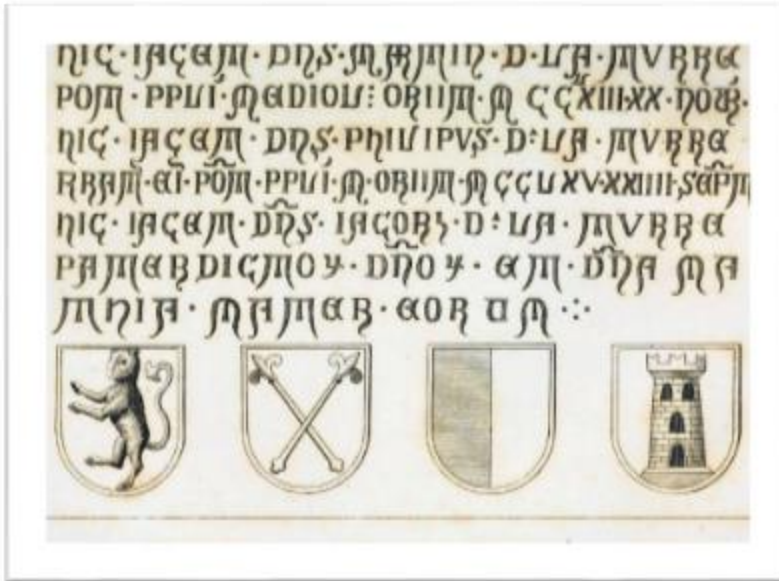 HIC · IACET · DNS · MARTIN · D · LA · TVRRE
POT · PPLI · MEDIOL : OBIIT · M CCXIII · XX · NOVB ·
HIC · IACET · DNS · PHILIPVS · D : LA · TVRRE
FRAT · ET · POT · PPLI · M · OBIIT · M CCLXV · XXIIII · SEPT
HIC · IACET · DNS · IACOB' · D : LA · TVRRE
PATER DICTOꝜ · DNOꝜ · ET · DNA MA
THIA · MATER · EORUM ·:·